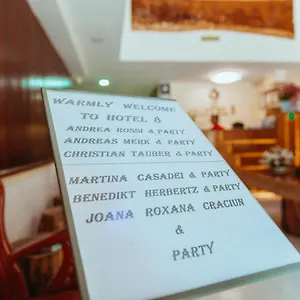 WARMLY WELCOME
TO HOTEL 8
ANDREA ROSSI & PARTY
ANDREAS MERK & PARTY
CHRISTIAN TAUBER & PARTY
MARTINA CASADEI & PARTY
BENEDIKT HERBERTZ & PARTY
JOANA ROXANA CRACIUN
&
PARTY